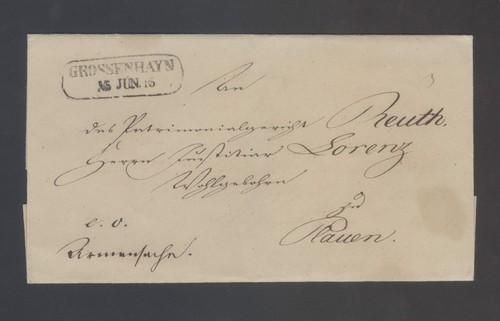 GROSSENHAYN
15 JUN. 16
An
das Patrimonialgericht Reuth.
Herrn Justitiar Lorenz
Wohlgeborn
zu
Plauen.
e. o.
Armensache.